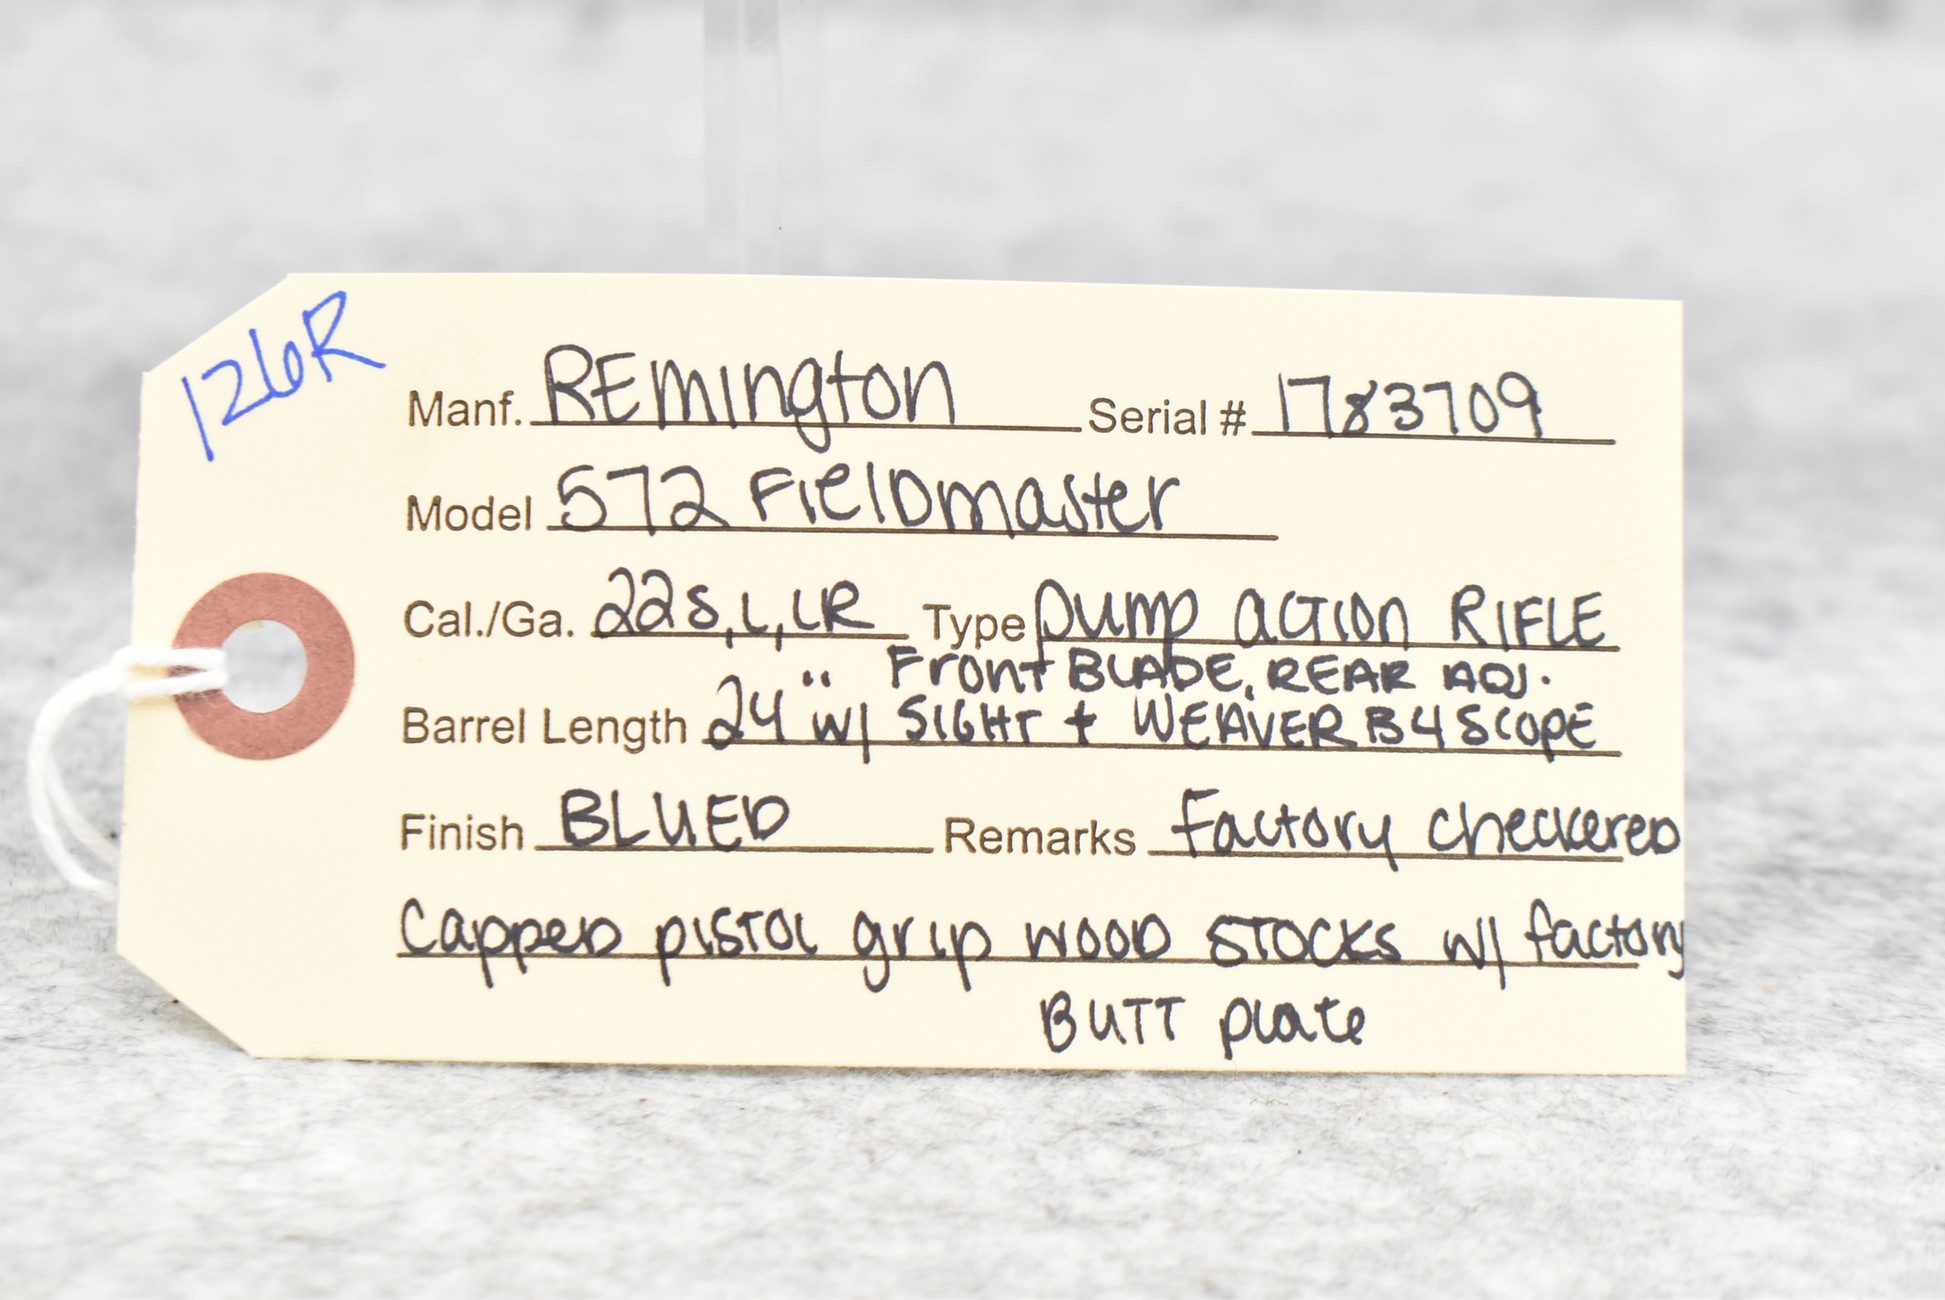 126R
Manf. REmington Serial # 1783709
Model 572 FielDmaster
Cal./Ga. 22S, L, LR Type pump action RIFLE
Front BLADE, REAR ADJ.
Barrel Length 24" w/ SIGHT + WEAVER B4 SCOPE
Finish BLUED Remarks Factory checkereD
CappeD pistol grip wooD STOCKS w/ factory
BUTT plate